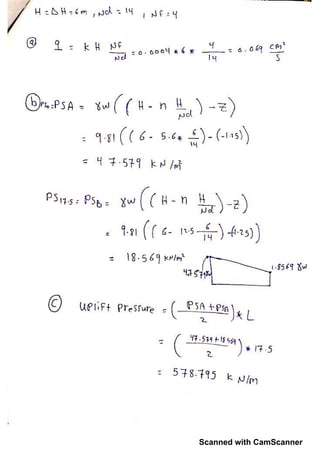 H = ΔH = 6m , Nd = 14 , Nf = 4
ⓐ q = k H Nf/Nd = 0.0004 * 6 * 4/14 = 0.069 cm²/s
ⓑ PSA = γw ((H - n H/Nd) - Z)
= 9.81 ((6 - 5.6 * 6/14) - (-1.25))
= 47.579 kN/m²
PS17.5 = PSb = γw ((H - n H/Nd) - Z)
= 9.81 ((6 - 12.5 6/14) - (-1.25))
= 18.569 kN/m²
47.579
18.569 γw
ⓒ uplift pressure = (PSA + PSB / 2) * L
= (47.579 + 18.569 / 2) * 17.5
= 578.795 kN/m
Scanned with CamScanner